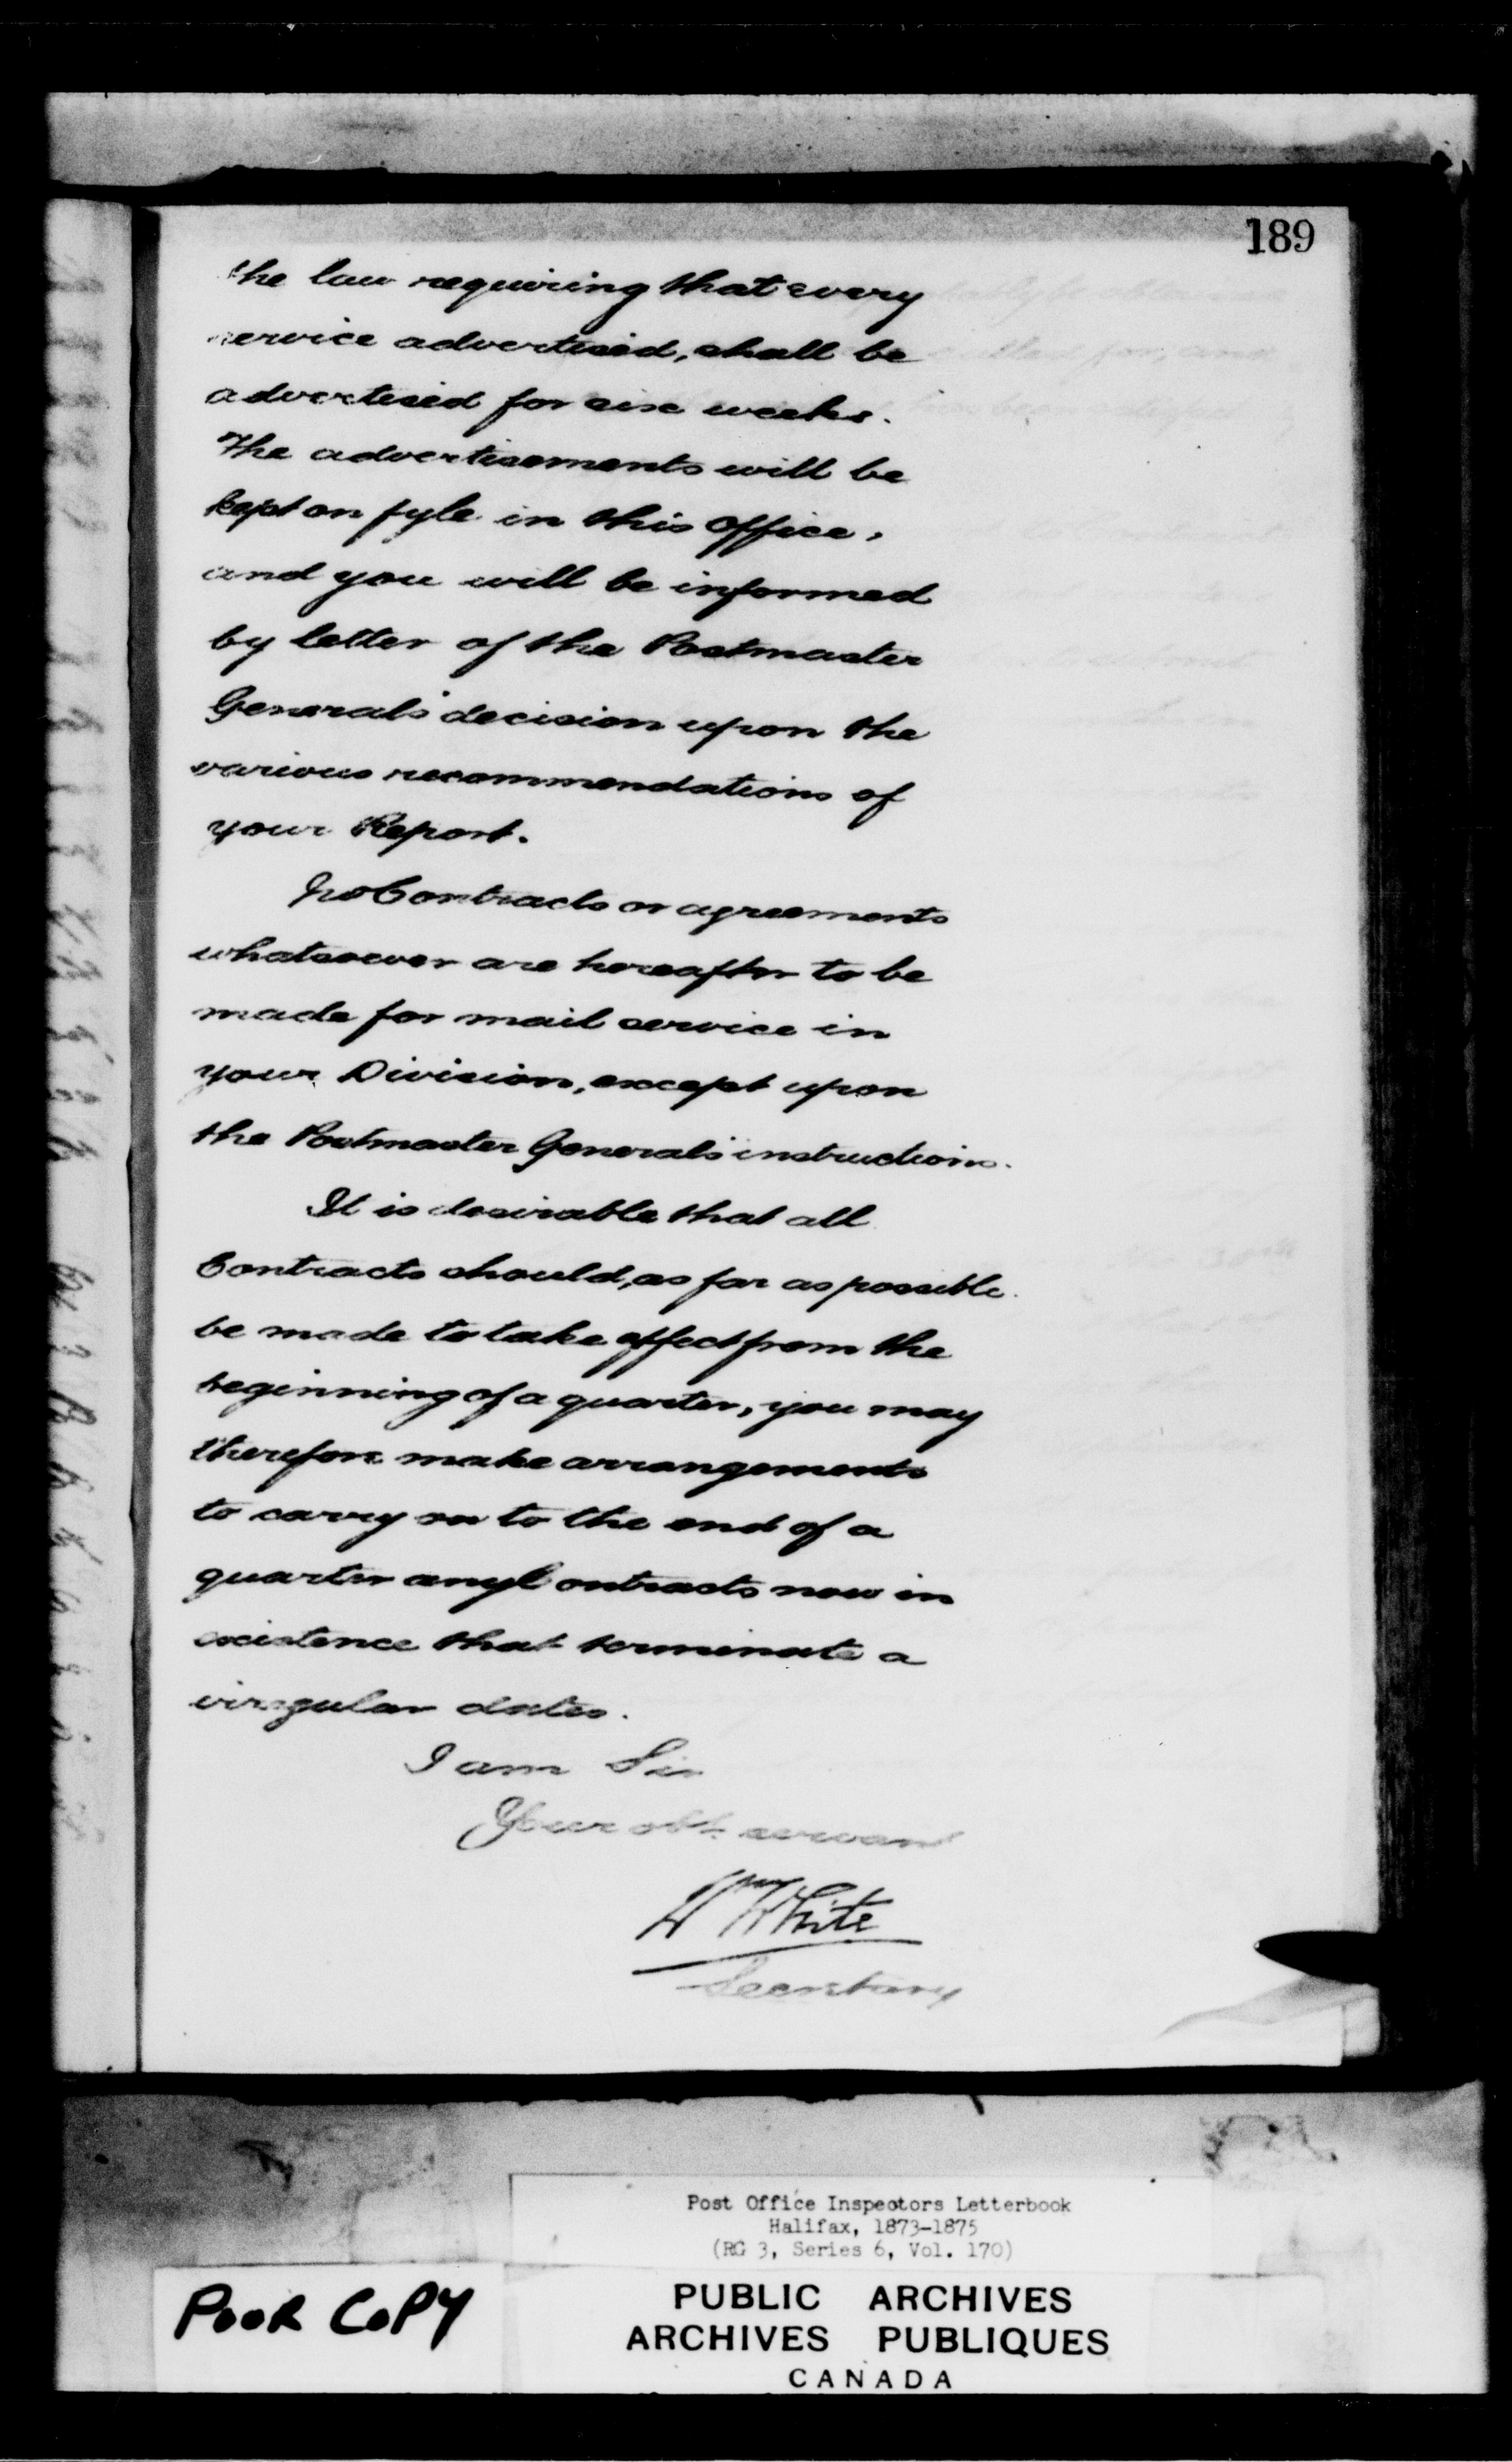 189
the law requiring that every
service advertised, shall be
advertised for six weeks.
The advertisements will be
kept on fyle in this office,
and you will be informed
by letter of the Postmaster
General's decision upon the
various recommendations of
your Report.
No Contracts or agreements
whatsoever are hereafter to be
made for mail service in
your Division, except upon
the Postmaster General's instructions.
It is desirable that all
Contracts should, as far as possible
be made to take effect from the
beginning of a quarter, you may
therefore make arrangements
to carry on to the end of a
quarter any Contracts now in
existence that terminate a
irregular dates.
I am Sir
Your obt. servant
Wm White
Secretary
Post Office Inspectors Letterbook
Halifax, 1873-1875
(RG 3, Series 6, Vol. 170)
POOR COPY
PUBLIC ARCHIVES
ARCHIVES PUBLIQUES
CANADA